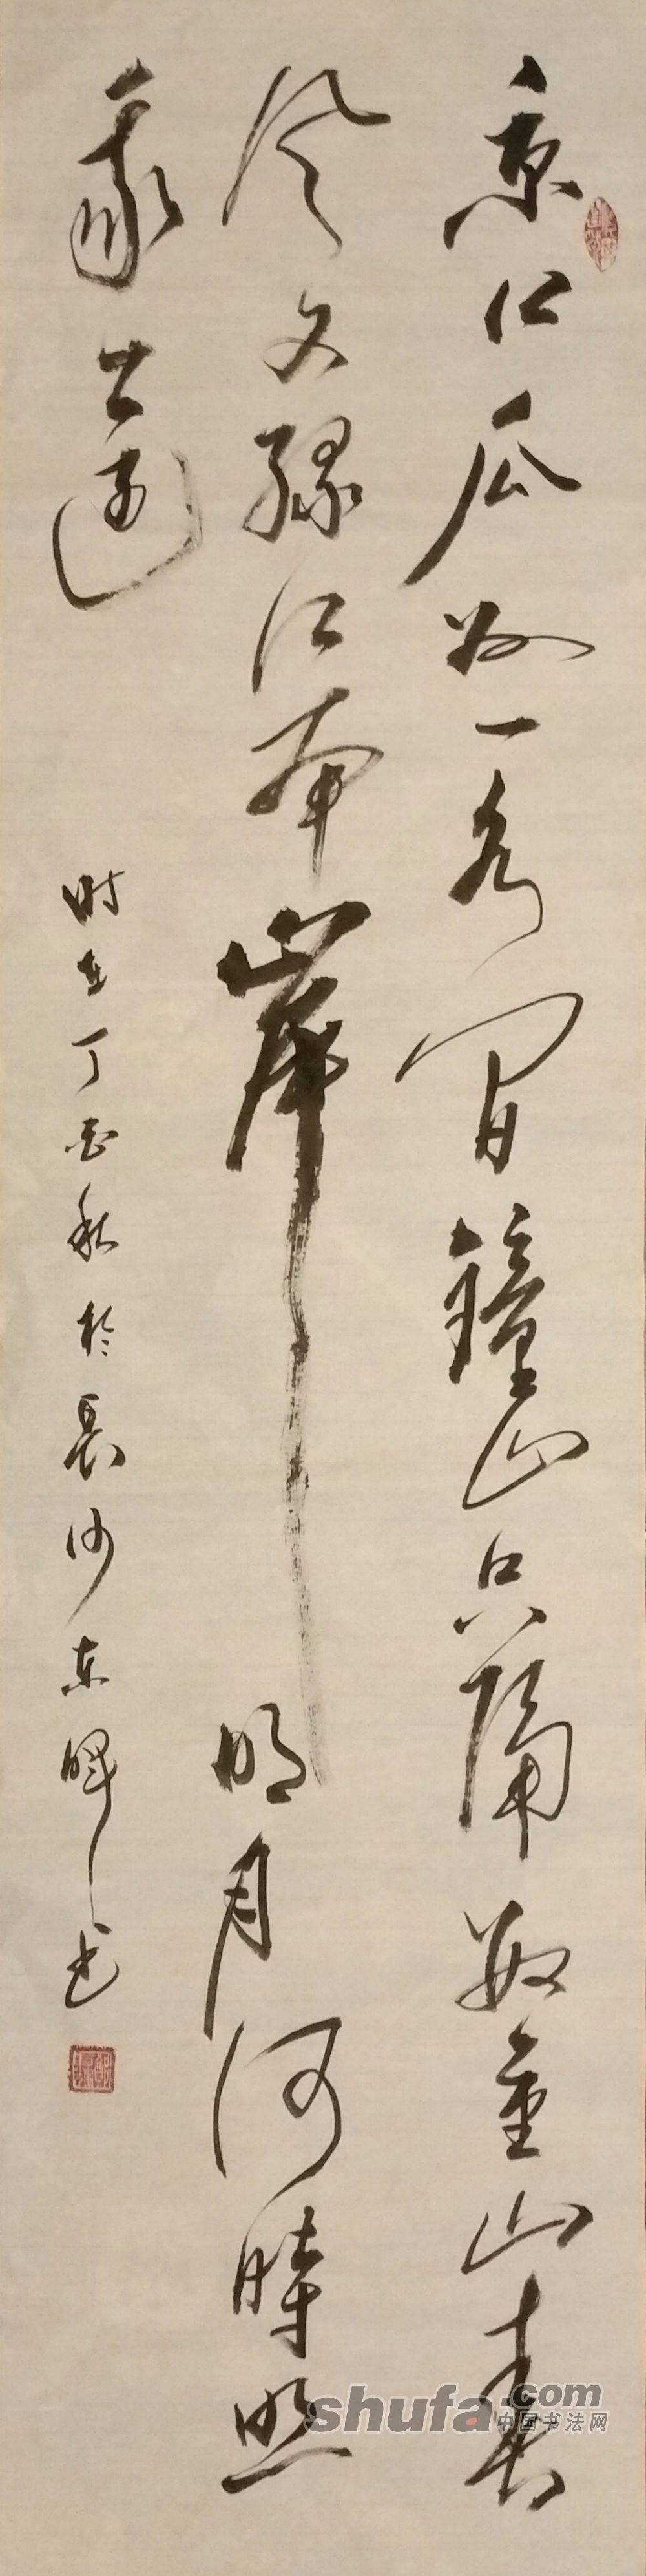 京口瓜州一水间鐘山只隔数重山春
风又绿江南岸明月何時照
我還
时在丁酉秋於長沙东晖书
shufa.com
中国书法网